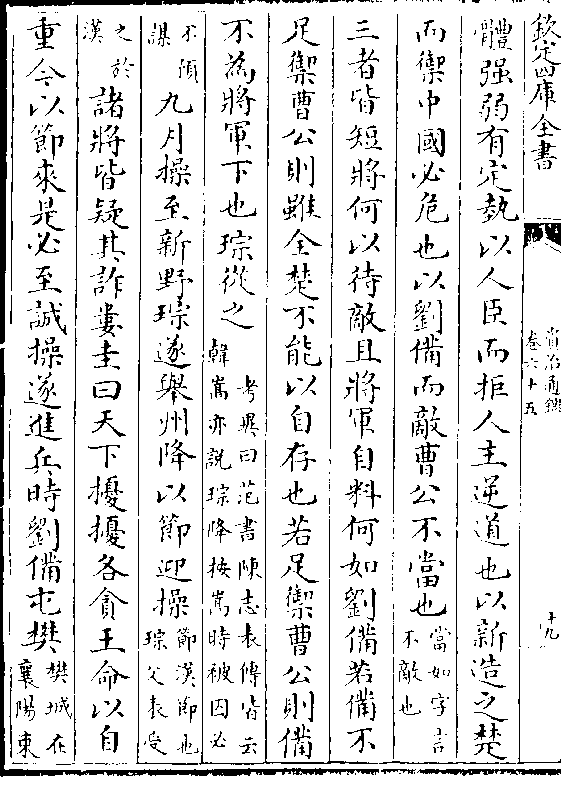 欽定四庫全書
資治通鑑
卷六十五
十九
體强弱有定埶以人臣而拒人主逆道也以新造之楚
而禦中國必危也以劉備而敵曹公不當也當如字言不敵也
三者皆短將何以待敵且將軍自料何如劉備若備不
足禦曹公則雖全楚不能以自存也若足禦曹公則備
不為將軍下也琮從之考異曰范書陳志表傳皆云韓嵩亦說琮降按嵩時被囚必
不預謀九月操至新野琮遂舉州降以節迎操節漢節也琮父表受
之於漢諸將皆疑其詐婁圭曰天下擾擾各貪王命以自
重今以節來是必至誠操遂進兵時劉備屯樊樊城在襄陽東